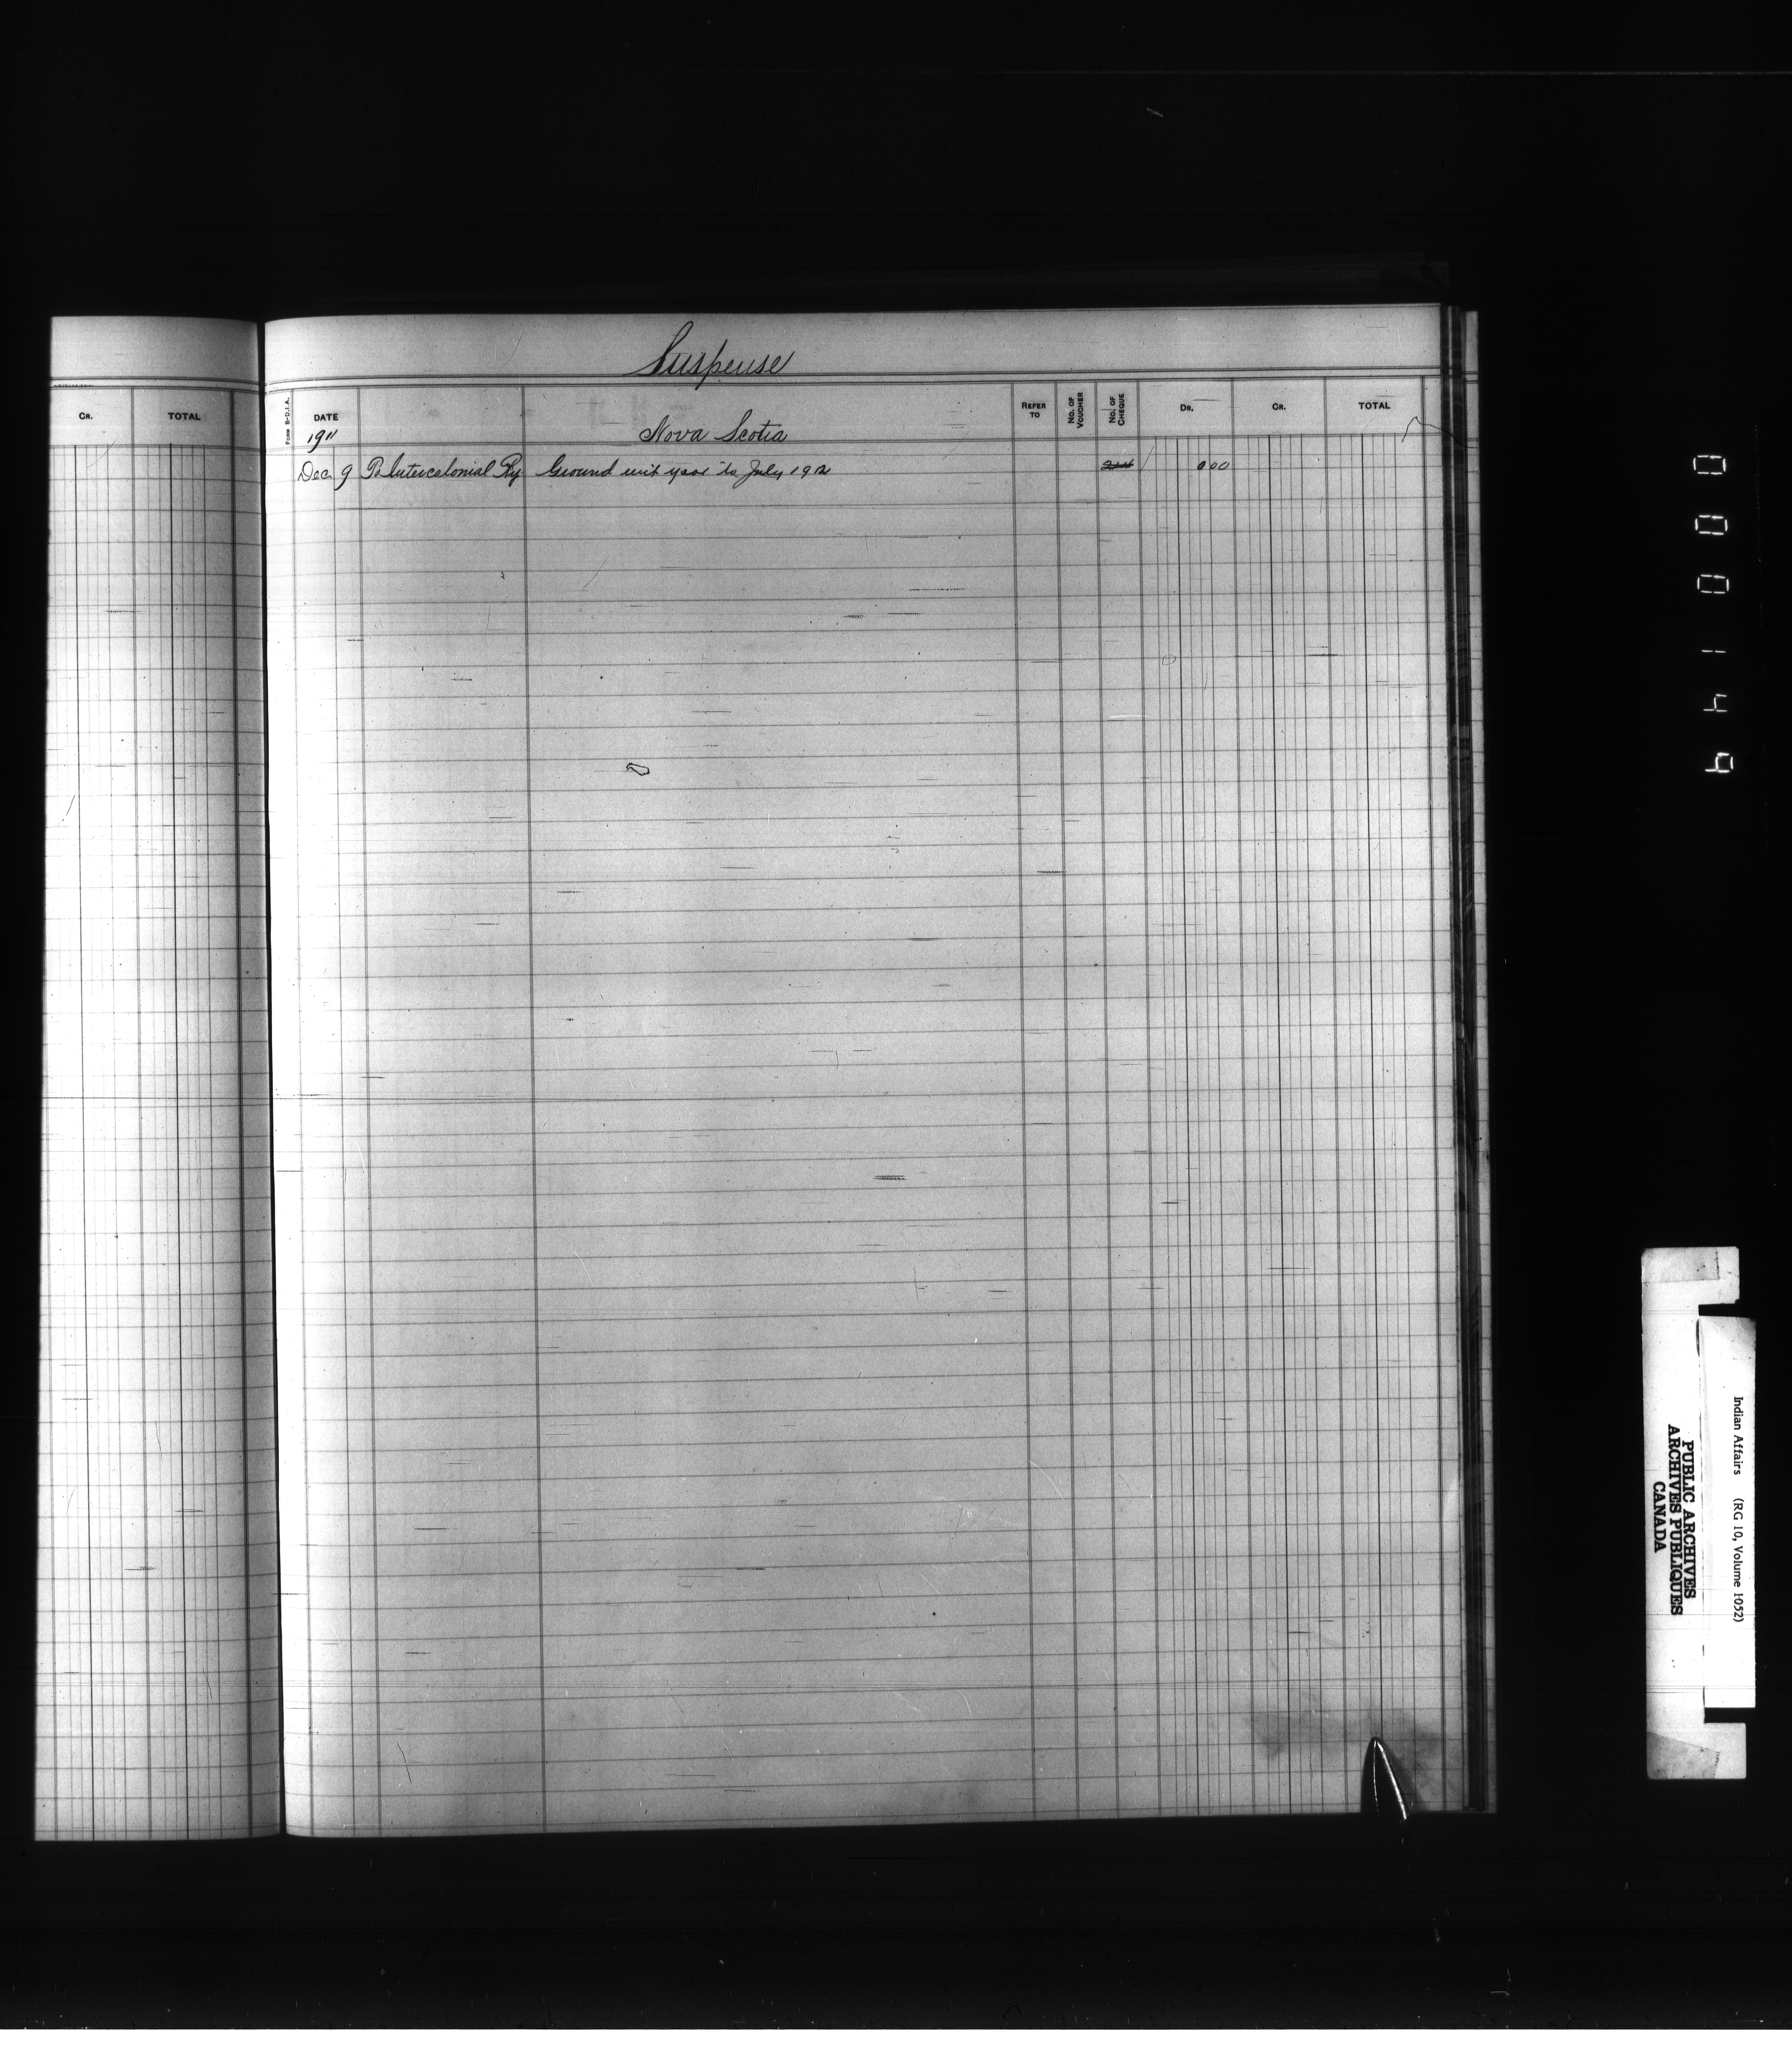 Suspense
CR. TOTAL
FORM B-D.I.A. DATE REFER TO No. OF VOUCHER No. OF CHEQUE DR. CR. TOTAL
1911 Nova Scotia
Dec 9 To Intercolonial Ry Ground rent year to July 1912
000149
Indian Affairs (RG 10, Volume 1052)
PUBLIC ARCHIVES
ARCHIVES PUBLIQUES
CANADA